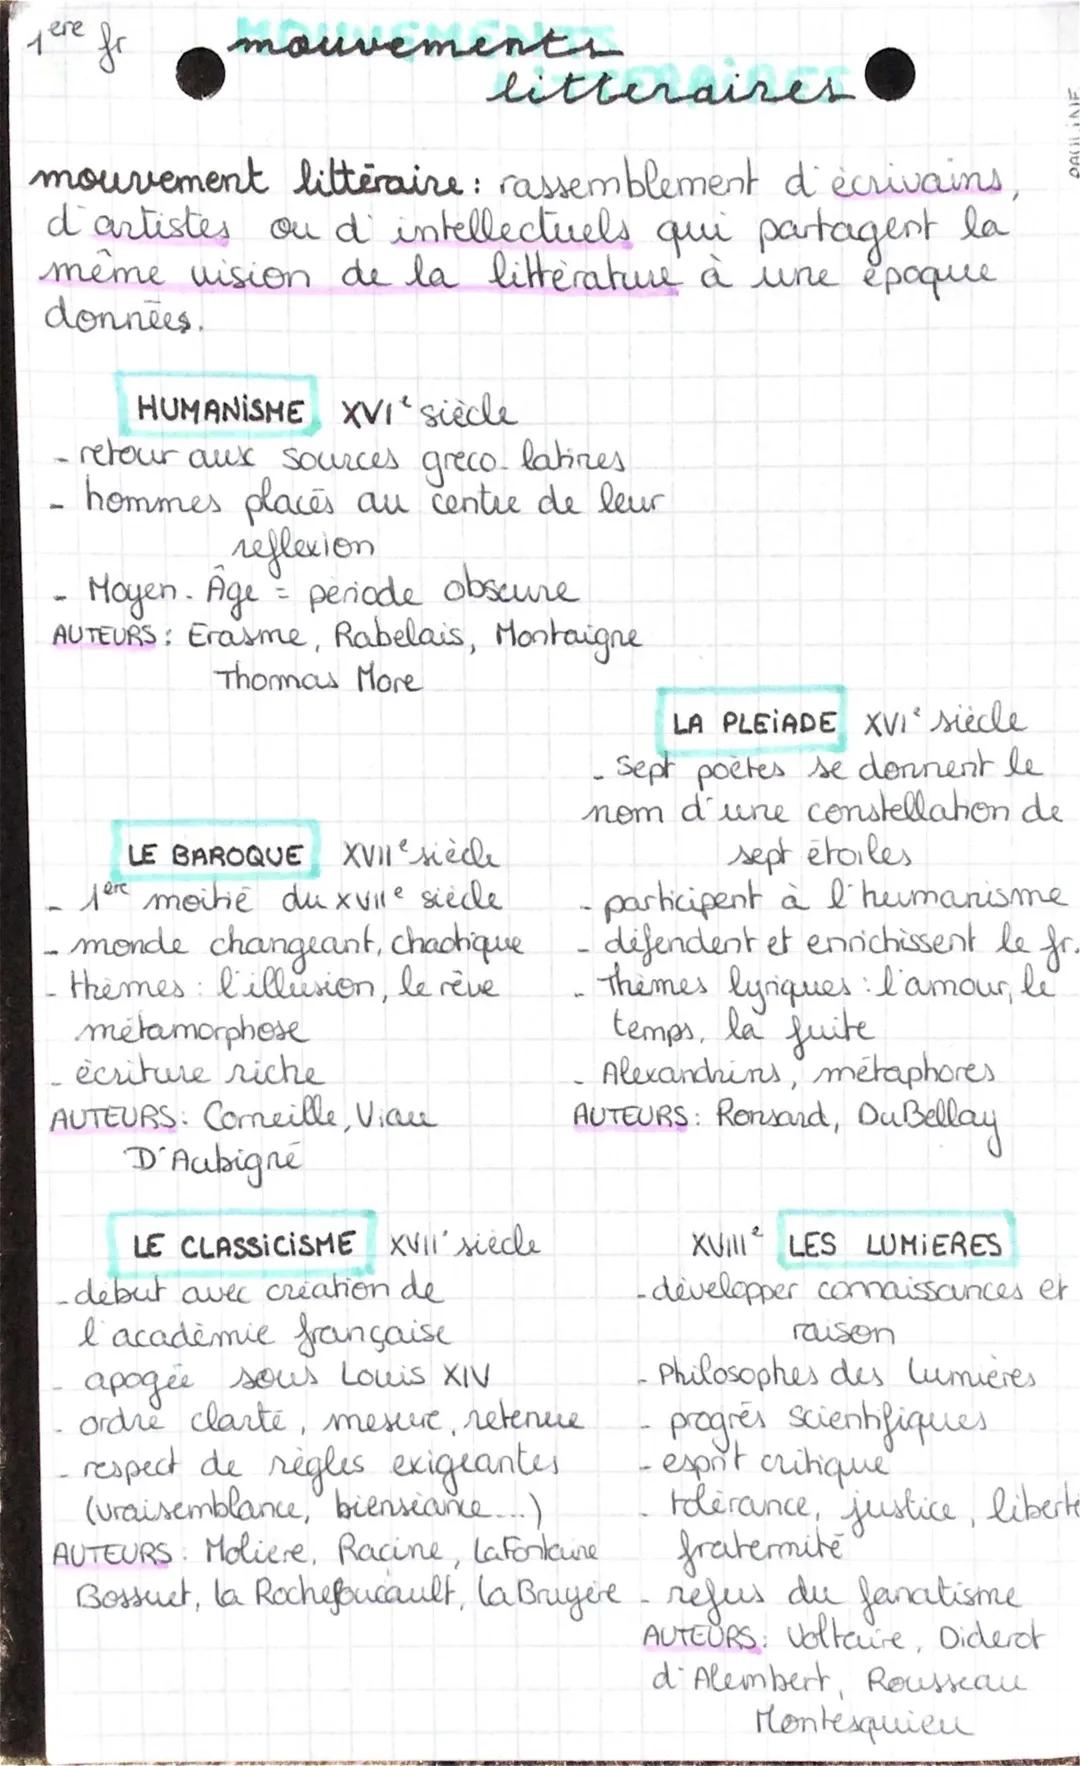 1ère fr
mouvements
littéraires
PAULINE
mouvement littéraire : rassemblement d'écrivains,
d'artistes ou d'intellectuels qui partagent la
même vision de la littérature à une époque
données.
HUMANISME XVIe siècle
- retour aux sources greco-latines
- hommes placés au centre de leur
reflexion
- Moyen-Âge = période obscure
AUTEURS : Erasme, Rabelais, Montaigne
Thomas More
LA PLEIADE XVIe siècle
- Sept poètes se donnent le
nom d'une constellation de
sept étoiles
- participent à l'humanisme
- défendent et enrichissent le fr.
- Thèmes lyriques : l'amour, le
temps, la fuite
- Alexandrins, métaphores
AUTEURS : Ronsard, Du Bellay
LE BAROQUE XVIIe siècle
- 1ère moitié du XVIIe siècle
- monde changeant, chaotique
- thèmes : l'illusion, le rêve
métamorphose
- écriture riche
AUTEURS : Corneille, Viau
D'Aubigné
LE CLASSICISME XVII' siècle
- début avec création de
l'académie française
- apogée sous Louis XIV
- ordre clarté, mesure, retenue
- respect de règles exigeantes
(vraisemblance, bienséance...)
AUTEURS : Molière, Racine, La Fontaine
Bossuet, la Rochefoucault, la Bruyère
XVIIIe LES LUMIERES
- développer connaissances et
raison
- Philosophes des Lumières
- progrès scientifiques
- esprit critique
- tolérance, justice, liberté
fraternité
- refus du fanatisme
AUTEURS : Voltaire, Diderot
d'Alembert, Rousseau
Montesquieu